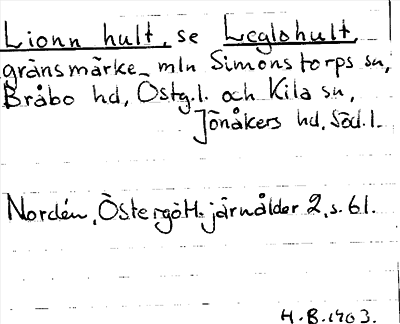 Lionn hult, se Leglohult,
gränsmärke mln Simonstorps sn,
Bråbo hd, Östg.l. och Kila sn,
Jönåkers hd, Söd.l.
Nordén, Östergötl. järnålder 2, s. 61.
H.B. 1903.